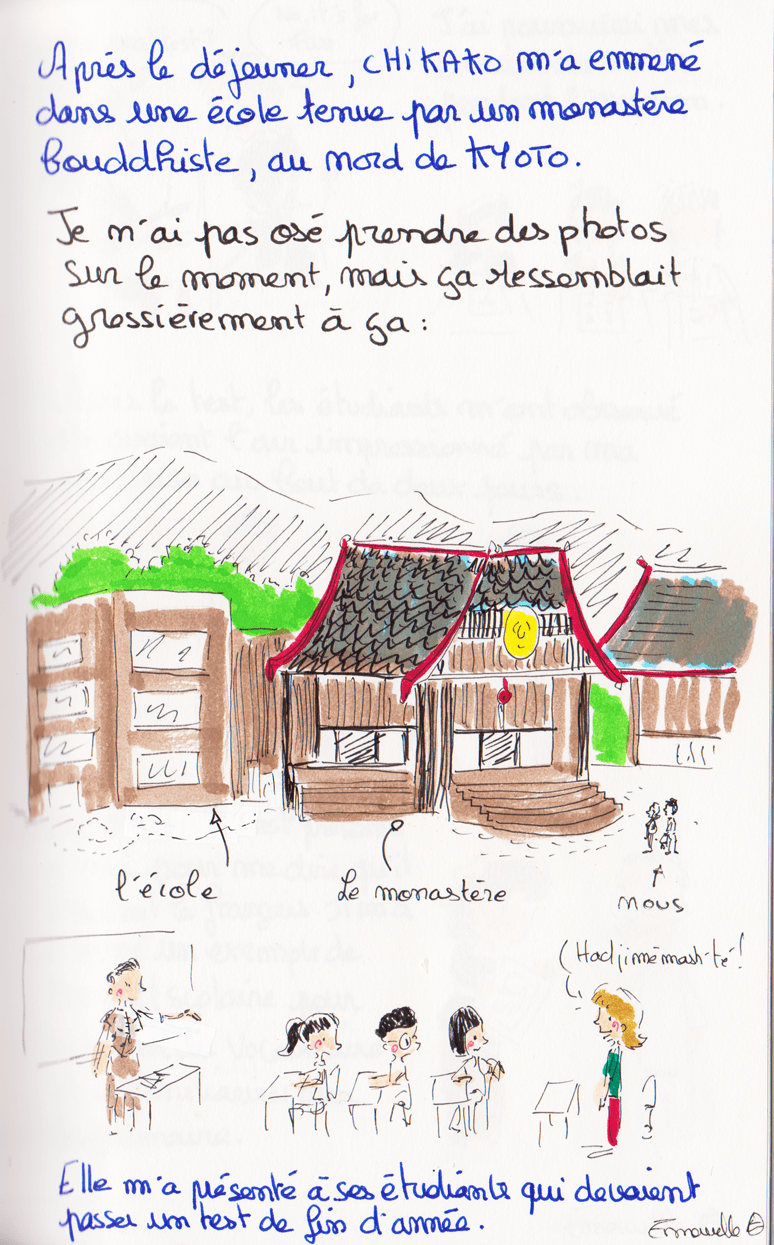 Après le déjeuner, CHIKAKO m'a emmené
dans une école tenue par un monastère
bouddhiste, au nord de KYOTO.
Je n'ai pas osé prendre des photos
sur le moment, mais ça ressemblait
grossièrement à ça :
l'école
Le monastère
nous
Hadjimémash-té!
Elle m'a présenté à ses étudiants qui devaient
passer un test de fin d'année.
Emmanuelle